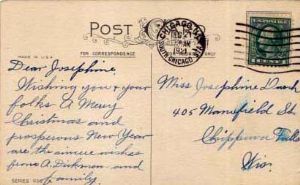 POST
CHICAGO, ILL.
1921
SOUTH CHICAGO
FOR CORRESPONDENCE
MADE IN U.S.A.
Dear Josephine,
Wishing you & your
folks A Merry
Christmas and
prosperous New Year
are the sincere wishes
from A. Dickman and
family
SERIES
Miss Josephine
405 Mansfield St.
Chippewa Falls
Wis.